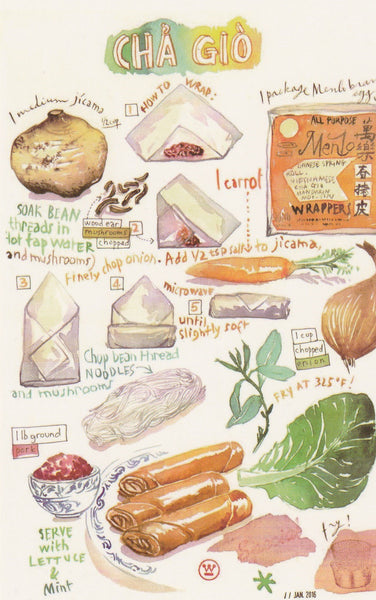 CHẢ GIÒ
1 medium jicama
1/2 cup
HOW TO WRAP:
1
1 package Menlo brand
egg
ALL PURPOSE
Menlo
CHINESE SPRING
ROLL,
VIETNAMESE
CHA GIO
MANDARIN
WRAPPERS
萬
樂
春
捲
皮
SOAK BEAN
threads in
hot tap water
and mushrooms)
wood ear
mushrooms
chopped
2
1 carrot
Add 1/2 tsp salt to jicama,
finely chop onion.
3
4
microwave
5
until
slightly soft
Chop bean thread
NOODLES
and mushrooms
1 cup
chopped
onion
FRY AT 325°F!
1 lb ground
pork
SERVE
with
LETTUCE
&
Mint
W
fry!
// JAN. 2016